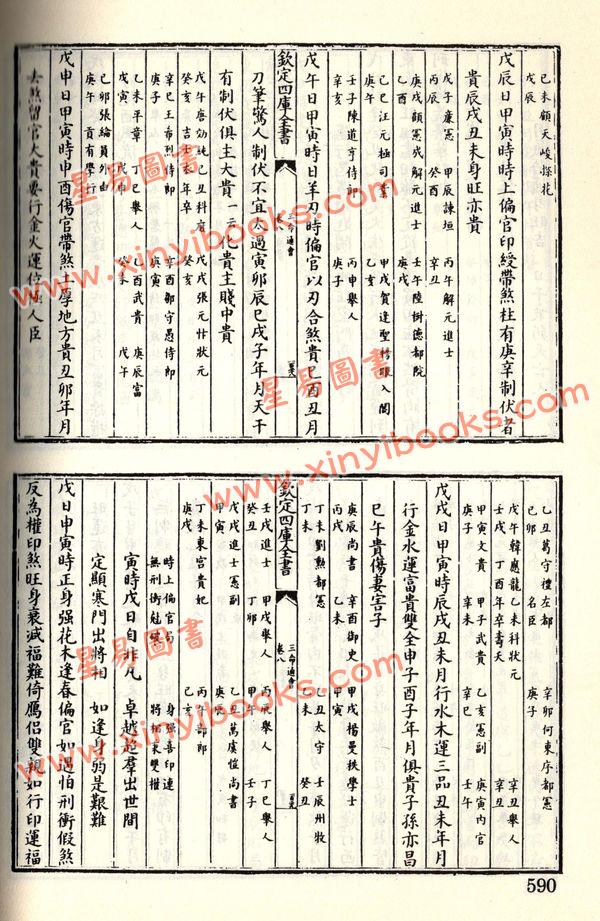 己未顧天峻探花
戊辰
戊辰日甲寅時時上偏官印綬帶煞柱有庚辛制伏者
貴辰戌丑未身旺亦貴
戊子廉憲 甲辰諫垣 丙午解元進士
丙辰 癸酉 辛丑
庚戌顧憲成解元進士 壬午陸樹德都院
乙酉 庚戌
己巳汪元極司業 甲戌賀逢聖榜眼入閣
庚午 乙亥
壬子陳道亨侍郎 丙申舉人
辛亥 庚子
戊午日甲寅時日羊刃時偏官以刃合煞貴巳酉丑月
欽定四庫全書
三命通會
刀筆驚人制伏不宜太過寅卯辰巳戌子年月天干
有制伏俱主大貴一云化貴主賤中貴
戊午唐効純己丑科府 戊戌張元忭狀元
癸亥 吉士 年卒 癸亥
辛巳王希烈侍郎 辛酉鄒守愚侍郎
庚子 庚寅
乙未平章 丁巳舉人 乙酉武貴 庚辰富
戊寅 戊申 癸未 戊午
己卯張綸員外由
庚午 貢有學行
戊申日甲寅時申酉傷官帶煞土厚地方貴丑卯年月
去煞留官大貴要行金火運位極人臣
乙丑葛守禮左都 辛卯何東序都憲
己卯 名臣 庚子
戊午韓應龍乙未科狀元 辛丑舉人
壬戌 丁酉年卒壽夭 辛丑
甲寅文貴 甲子武貴 乙亥憲副 庚寅內官
庚子 辛未 辛巳 壬午
戊戌日甲寅時辰戌丑未月行水木運三品丑未年月
行金水運富貴雙全申子酉子年月俱貴子孫亦昌
巳午貴傷妻害子
庚辰尚書 辛酉御史 甲戌楊曼秩學士
丙戌 乙未 甲寅
丁未劉勲都憲 乙丑太守 壬辰州牧
丁未 乙未 癸丑
欽定四庫全書
三命通會
卷八
壬戌進士 甲戌舉人 丙辰舉人 丁巳舉人
癸丑 丁卯 甲午 壬子
戊戌進士憲副 乙丑萬虞愷尚書
甲寅 庚辰
丁未東宮貴妃 丙午部郎
庚戌 乙亥
時上偏官 身強喜印連
無刑衝魁 將相 雙權
寅時戊日自非凡 卓越超羣出世間
定顯寒門出將相 如逢身弱是艱難
戊日甲寅時正身强花木逢春偏官如遇怕刑衝假煞
反為權印煞旺身衰減福難倚鴈侶雙親如行印運福
590
星易圖書
www.xinyibooks.com
星易圖書
www.xinyibooks.com
星易圖書
www.xinyibooks.com
星易圖書
www.xinyibooks.com